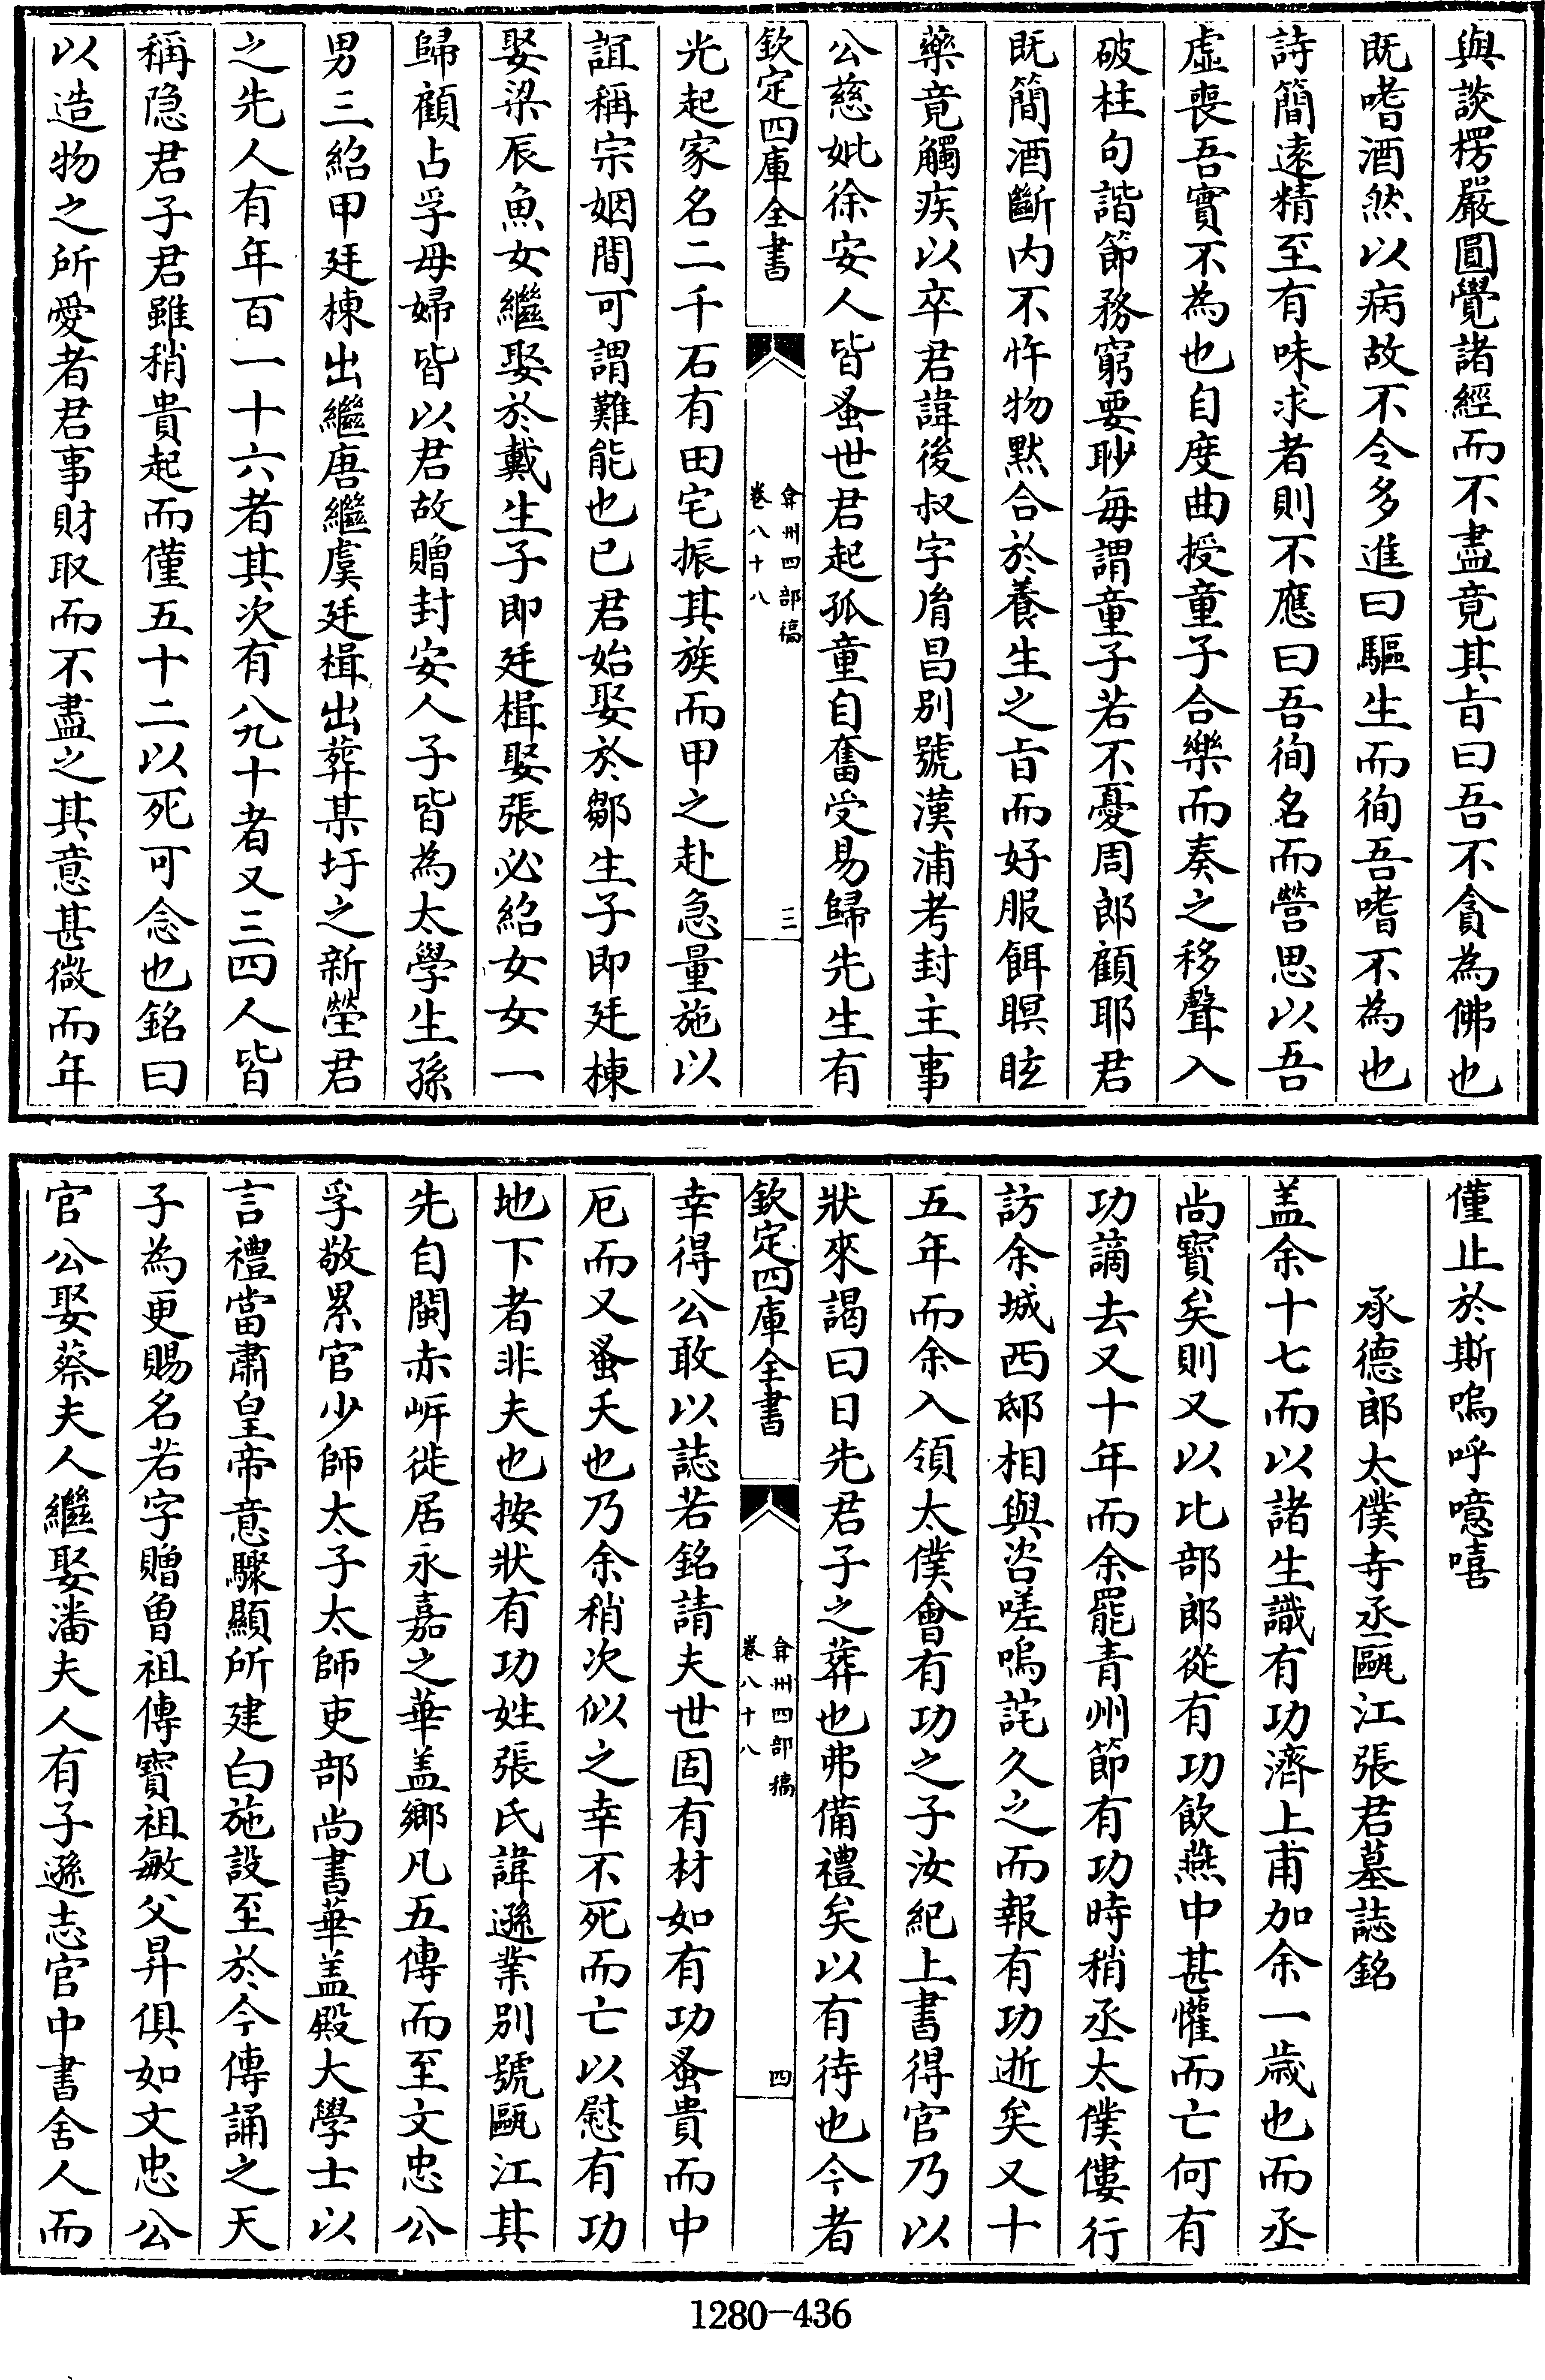 與談楞嚴圓覺諸經而不盡竟其㫖曰吾不貪為佛也
既嗜酒然以病故不令多進曰驅生而徇吾嗜不為也
詩簡遠精至有味求者則不應曰吾徇名而營思以吾
虛喪吾實不為也自度曲授童子合樂而奏之移聲入
破柱句諧節務窮要眇每謂童子若不憂周郎顧耶君
既簡酒斷内不忤物黙合於養生之㫖而好服餌瞑眩
藥竟觸疾以卒君諱後叔字胤昌别號漢浦考封主事
公慈妣徐安人皆蚤世君起孤童自奮受易歸先生有
欽定四庫全書
弇州四部稿
卷八十八
三
光起家名二千石有田宅振其族而甲之赴急量施以
誼稱宗姻間可謂難能也已君始娶於鄒生子即廷棟
娶梁辰魚女繼娶於戴生子即廷楫娶張必紹女女一
歸顧占孚母婦皆以君故贈封安人子皆為太學生孫
男三紹甲廷棟出繼唐繼虞廷楫出葬某圩之新塋君
之先人有年百一十六者其次有八九十者又三四人皆
稱隐君子君雖稍貴起而僅五十二以死可念也銘曰
以造物之所愛者君事財取而不盡之其意甚微而年
僅止於斯嗚呼噫嘻
承德郎太僕寺丞甌江張君墓誌銘
盖余十七而以諸生識有功濟上甫加余一歲也而丞
尚寶矣則又以比部郎從有功飲燕中甚懽而亡何有
功謫去又十年而余罷青州節有功時稍丞太僕僂行
訪余城西邸相與咨嗟嗚詫久之而報有功逝矣又十
五年而余入領太僕會有功之子汝紀上書得官乃以
狀來謁曰日先君子之葬也弗備禮矣以有待也今者
欽定四庫全書
弇州四部稿
卷八十八
四
幸得公敢以誌若銘請夫世固有材如有功蚤貴而中
厄而又蚤夭也乃余稍次似之幸不死而亡以慰有功
地下者非夫也按狀有功姓張氏諱遜業别號甌江其
先自閩赤岸徙居永嘉之華盖鄉凡五傳而至文忠公
孚敬累官少師太子太師吏部尚書華盖殿大學士以
言禮當肅皇帝意驟顯所建白施設至於今傳誦之天
子為更賜名若字贈曾祖傳寶祖敏父昇俱如文忠公
官公娶蔡夫人繼娶潘夫人有子遜志官中書舍人而
1280-436